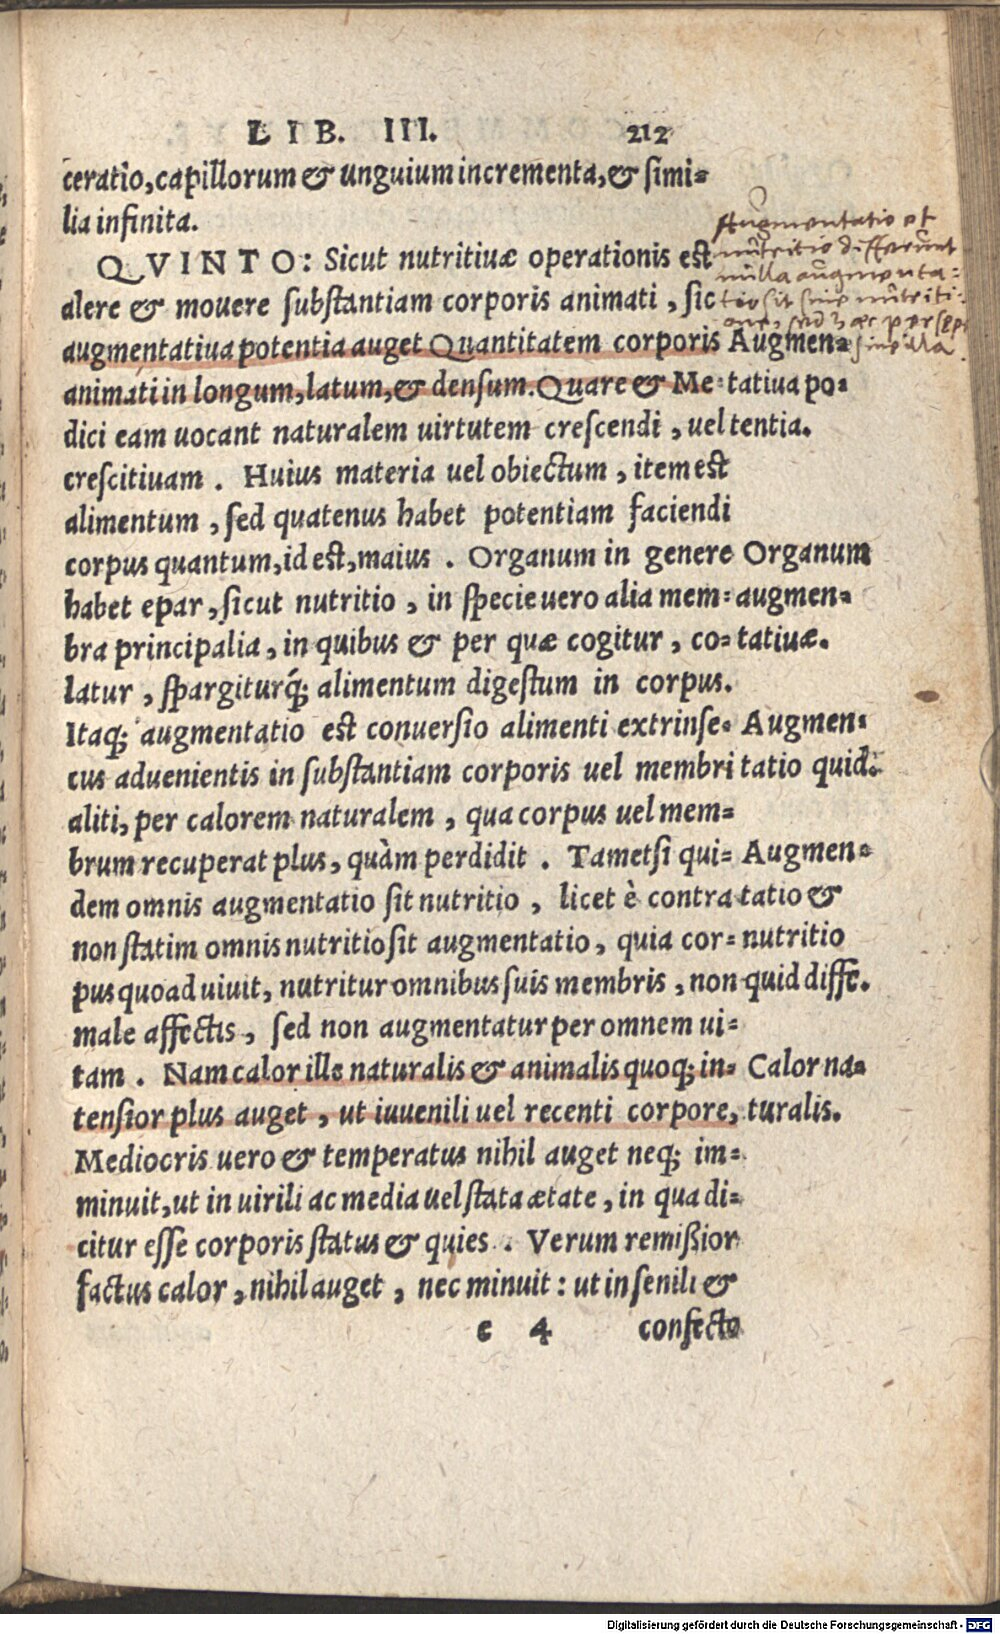 LIB. III. 212
ceratio, capillorum & unguium incrementa, & simi=
lia infinita.
QVINTO: Sicut nutritiuæ operationis est
alere & mouere substantiam corporis animati, sic
augmentatiua potentia auget Quantitatem corporis
animati in longum, latum, & densum. Quare & Me=
dici eam uocant naturalem uirtutem crescendi, uel
crescitiuam. Huius materia uel obiectum, item est
alimentum, sed quatenus habet potentiam faciendi
corpus quantum, id est, maius. Organum in genere
habet epar, sicut nutritio, in specie uero alia mem=
bra principalia, in quibus & per quæ cogitur, co=
latur, spargiturq́; alimentum digestum in corpus.
Itaq; augmentatio est conuersio alimenti extrinse=
cus aduenientis in substantiam corporis uel membri
aliti, per calorem naturalem, qua corpus uel mem=
brum recuperat plus, quàm perdidit. Tametsi qui=
dem omnis augmentatio sit nutritio, licet è contra
non statim omnis nutritio sit augmentatio, quia cor=
pus quoad uiuit, nutritur omnibus suis membris, non
male affectis, sed non augmentatur per omnem ui=
tam. Nam calor ille naturalis & animalis quoq; in=
tensior plus auget, ut iuuenili uel recenti corpore,
Mediocris uero & temperatus nihil auget neq; im=
minuit, ut in uirili ac media uel stata ætate, in qua di=
citur esse corporis status & quies. Verum remißior
factus calor, nihil auget, nec minuit: ut in senili &
e 4 confecto
Augmentatio et
nutritio differunt
nulla augmenta=
tio sit sine nutriti=
one, sed hæc per sepe
sine illa.
Augmen=
tatiua po=
tentia.
Organum
augmen=
tatiuæ.
Augmen=
tatio quid.
Augmen=
tatio &
nutritio
quid diffe.
Calor na=
turalis.
Digitalisierung gefördert durch die Deutsche Forschungsgemeinschaft - DFG